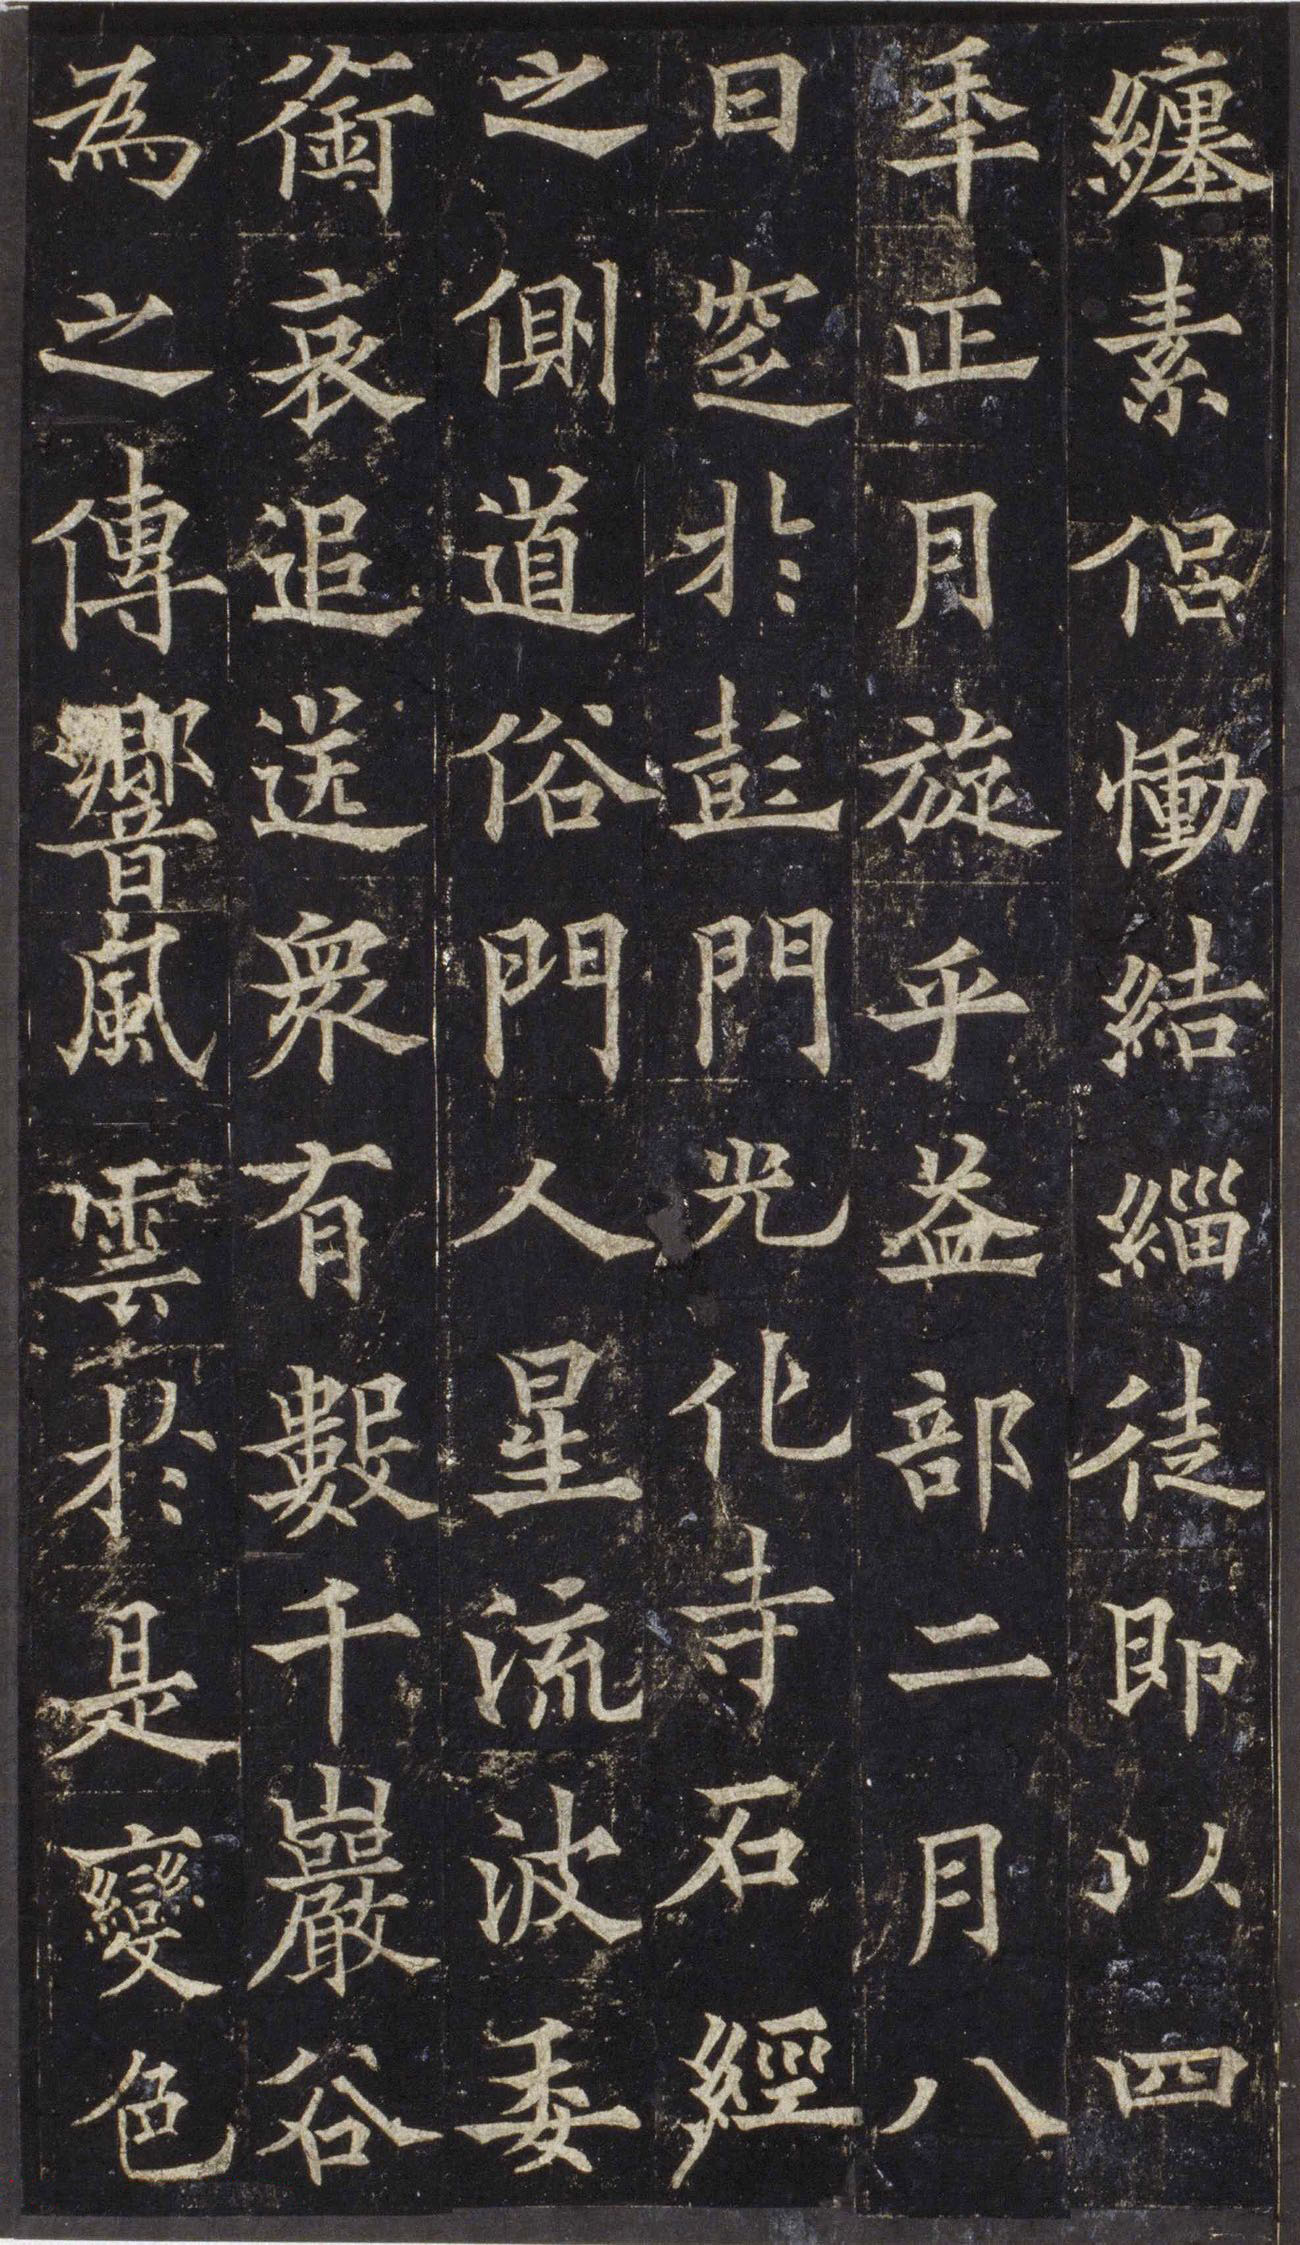 纏素侣慟結緇徒即以四
秊正月旋乎益部二月八
日窆於彭門光化寺石經
之側道俗門人星流波委
銜哀追送衆有數千巖谷
為之傳響風雲於是變色